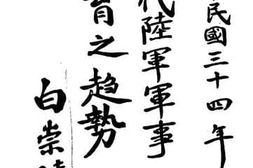 民國三十四年
代陸軍軍事
育之趨勢
白崇